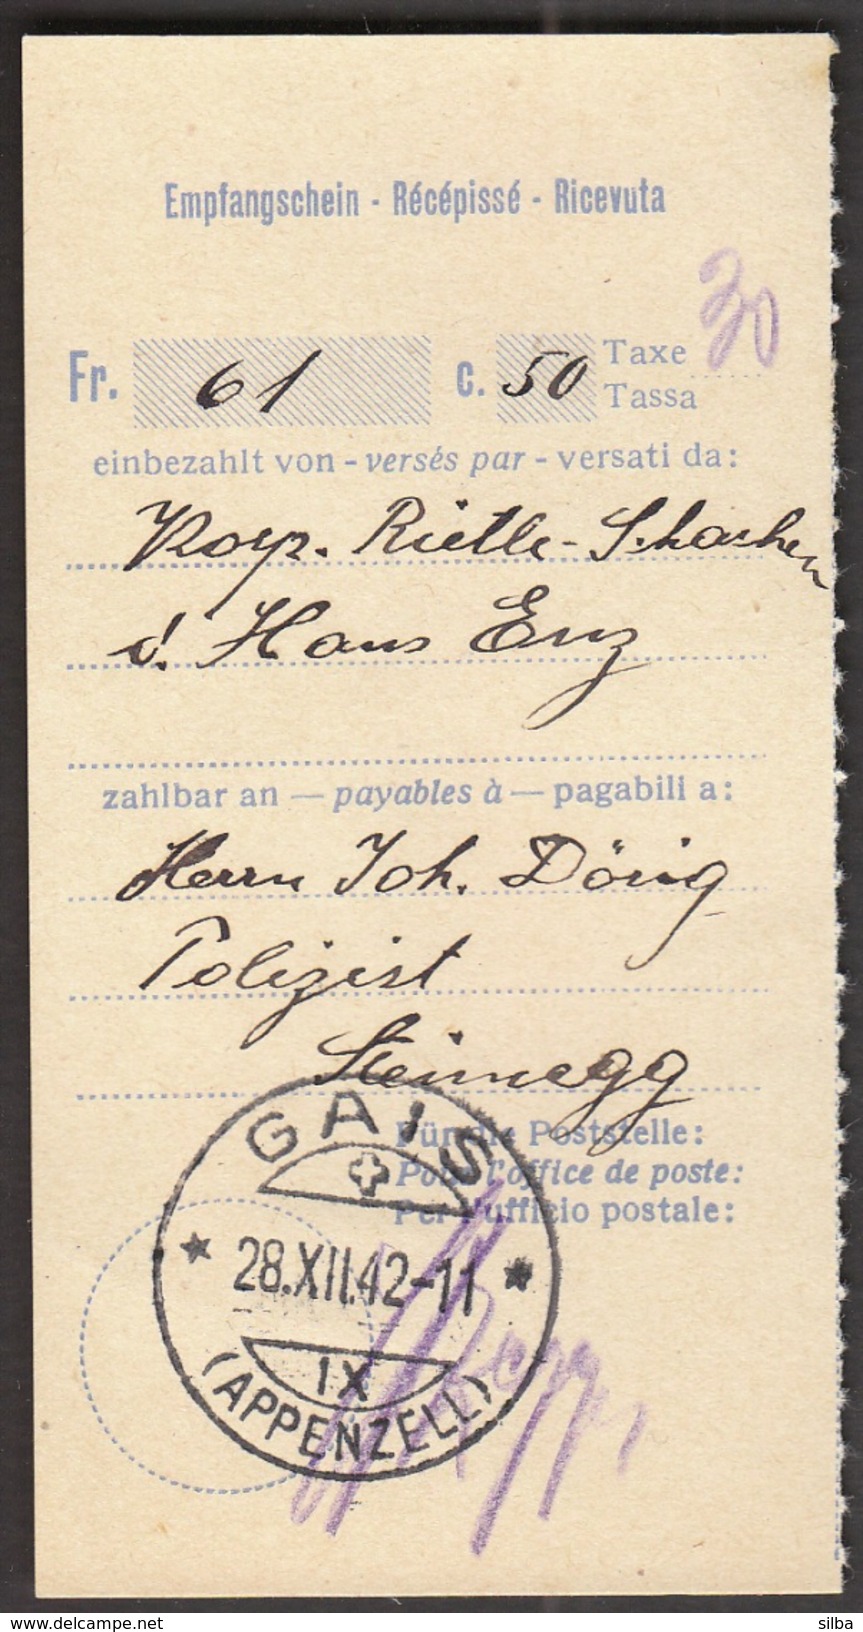 Empfangschein - Récépissé - Ricevuta
30
Fr. 61 c. 50 Taxe
Tassa
einbezahlt von - versés par - versati da:
Korp. Rietle-Schachen
d. Hans Enz
zahlbar an — payables à — pagabili a:
Herrn Joh. Dörig
Polizist
Steinegg
Für die Poststelle:
Pour l'office de poste:
Per l'ufficio postale:
GAIS
28.XII.42-11
IX
(APPENZELL)
delcampe.net
silba